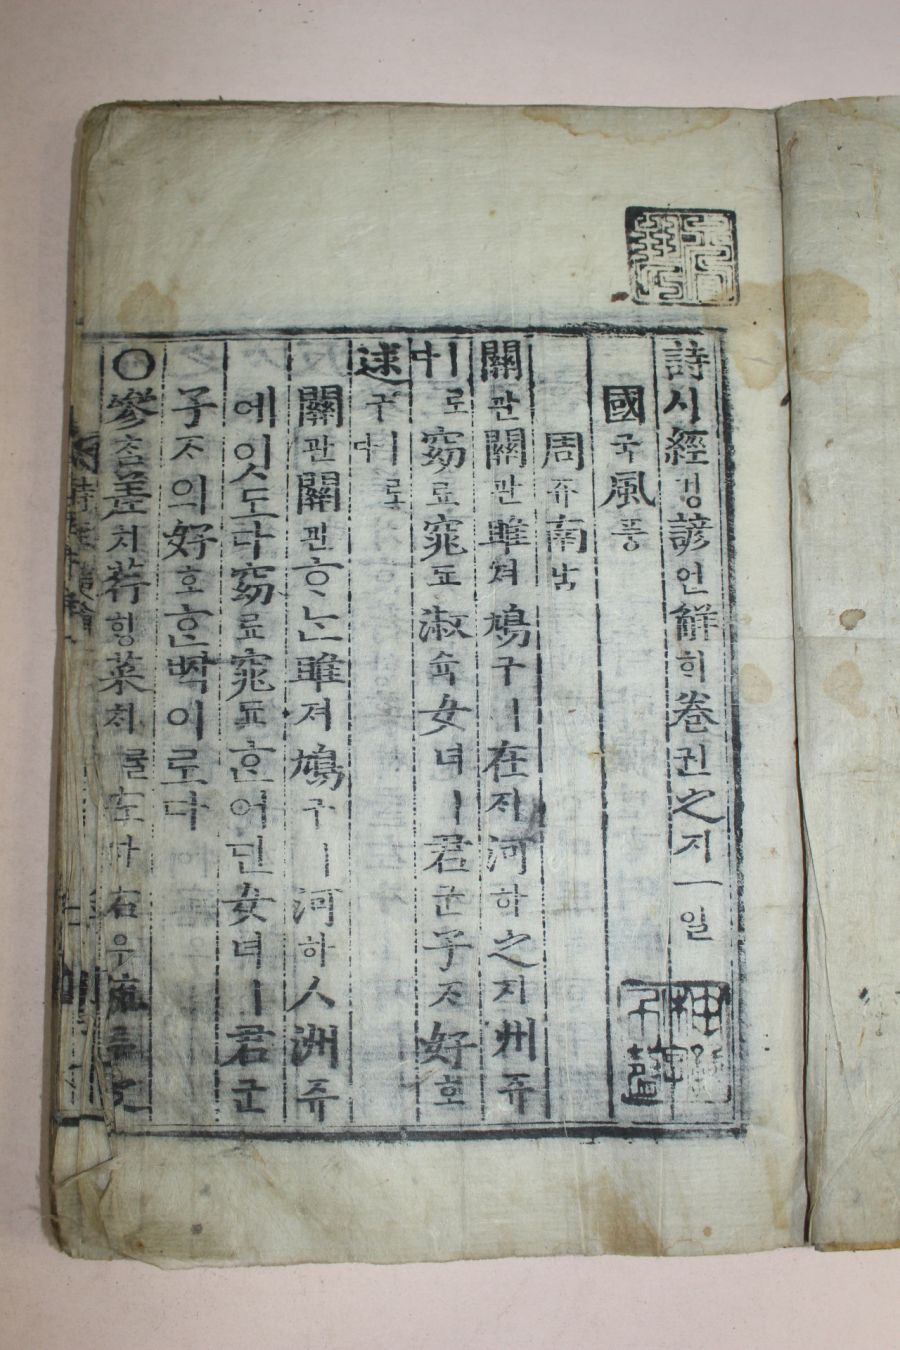 詩시經경諺언解ᄒᆡ卷권之지一일
國국風풍
周쥬南남
關관關관雎져鳩구ㅣ在ᄌᆡ河하之지洲쥬
ㅣ로窈요窕됴淑슉女녀ㅣ君군子ᄌᆞ好호
逑구ㅣ로
關관關관ᄒᆞᄂᆞᆫ雎져鳩구ㅣ河하ㅅ洲쥬
에잇도다窈요窕됴ᄒᆞᆫ어딘女녀ㅣ君군
子ᄌᆞ의好호ᄒᆞᆫᄧᅡᆨ이로다
○參ᄎᆞᆷ差치荇ᄒᆡᆼ菜ᄎᆡ를左좌右우